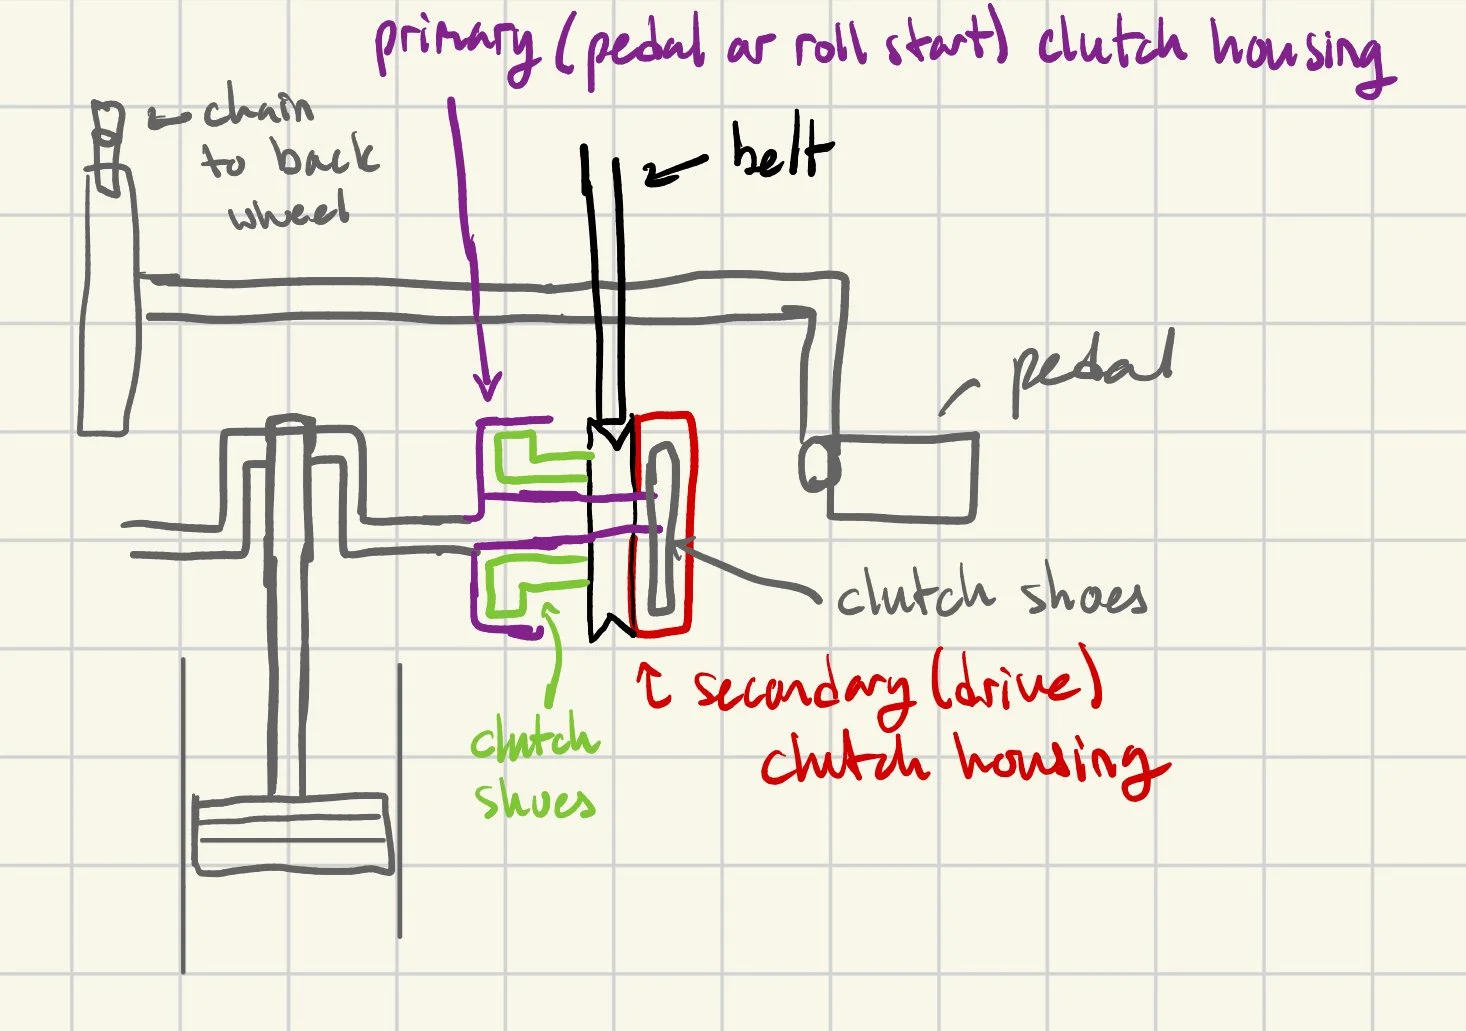 primary (pedal or roll start) clutch housing
chain
to back
wheel
belt
pedal
clutch shoes
secondary (drive)
clutch housing
clutch
shoes